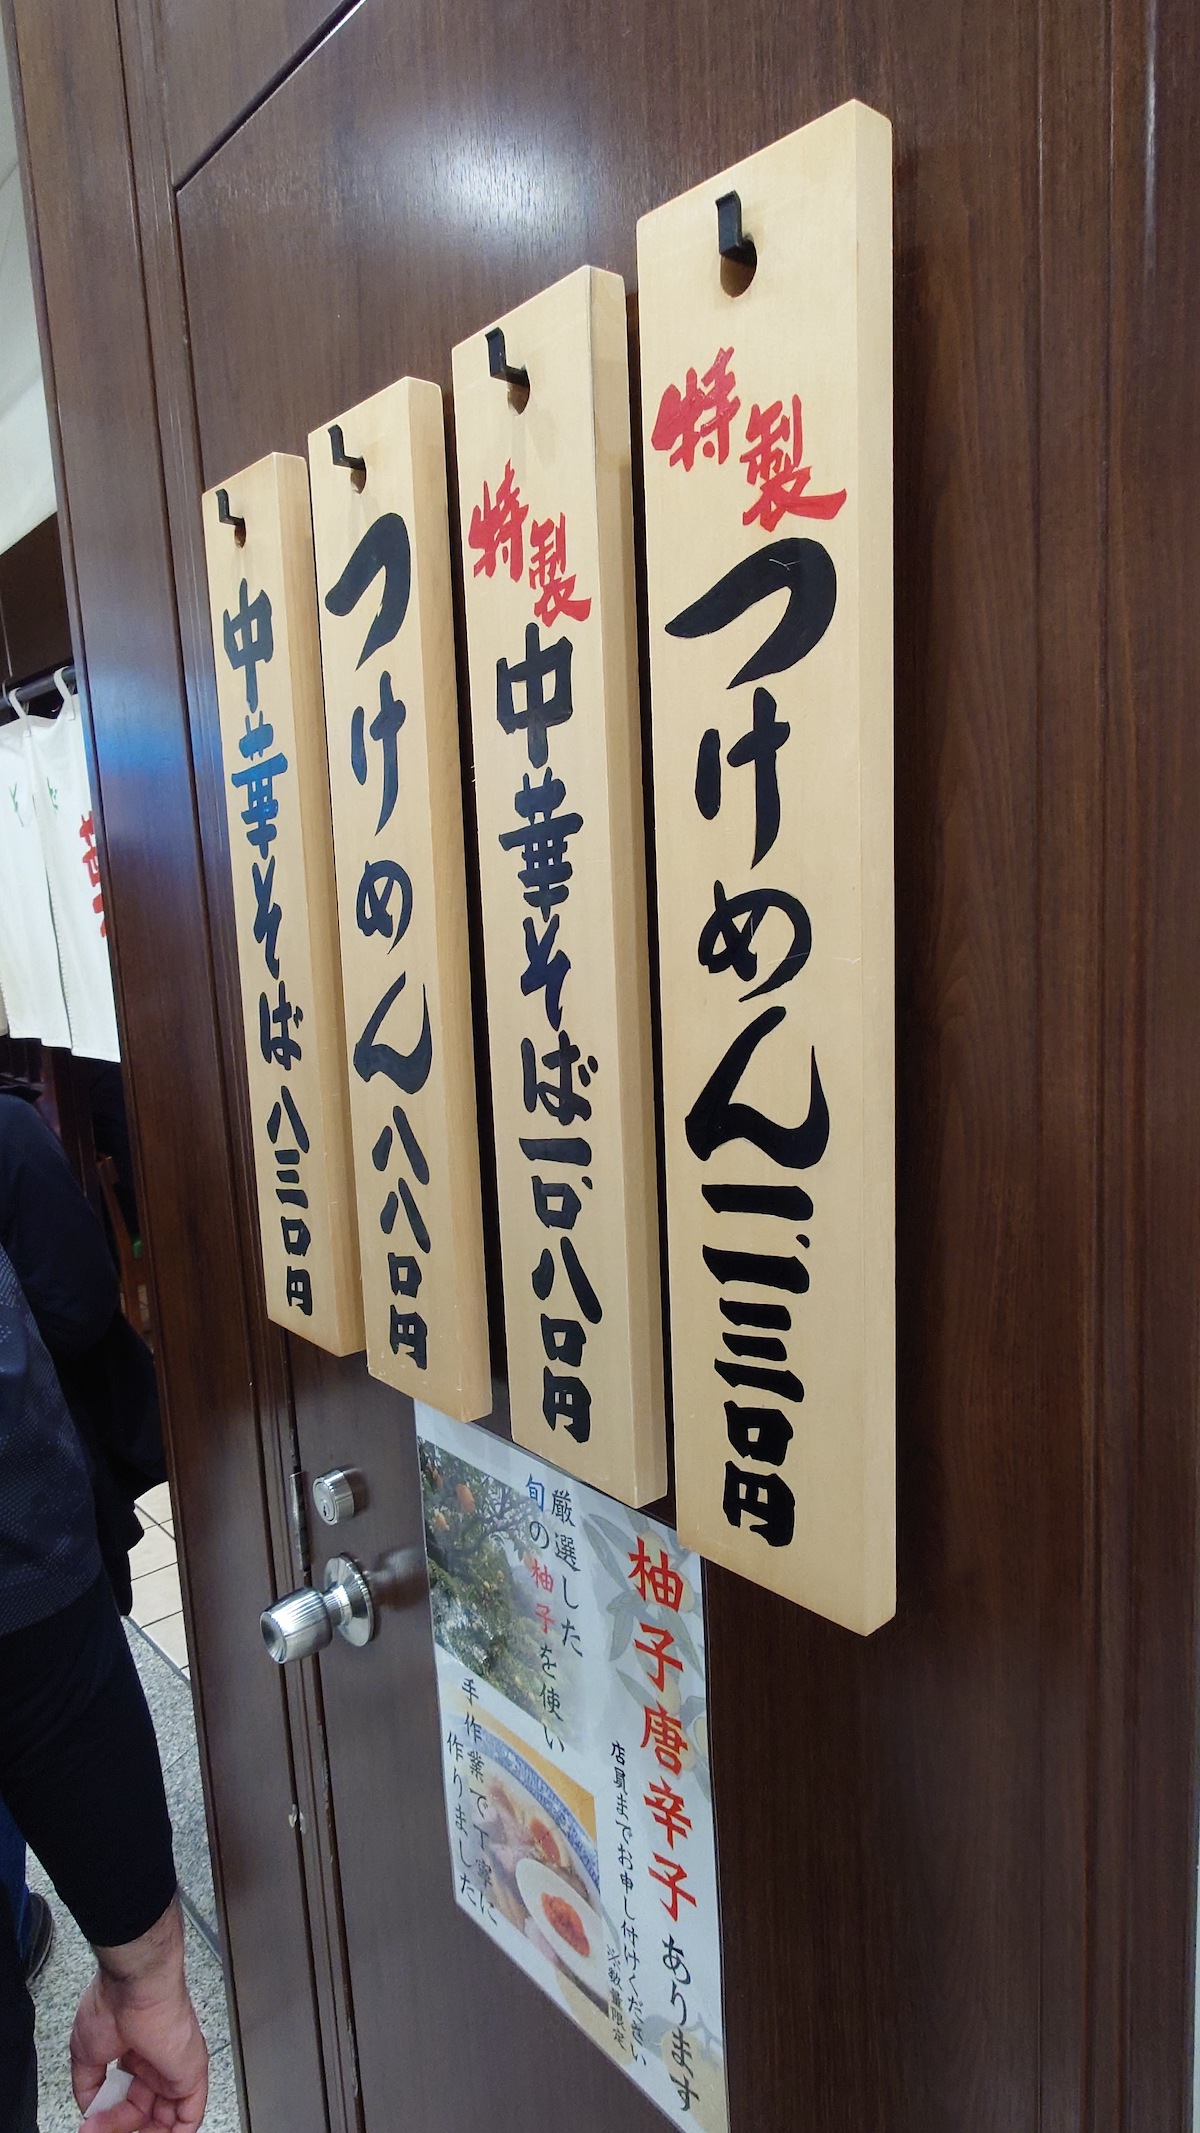 特製つけめん一、一三〇円
特製中華そば一、〇八〇円
つけめん八八〇円
中華そば八三〇円
柚子唐辛子あります
店員までお申し付けください
※数量限定
厳選した
旬の柚子を使い
手作業で丁寧に
作りました